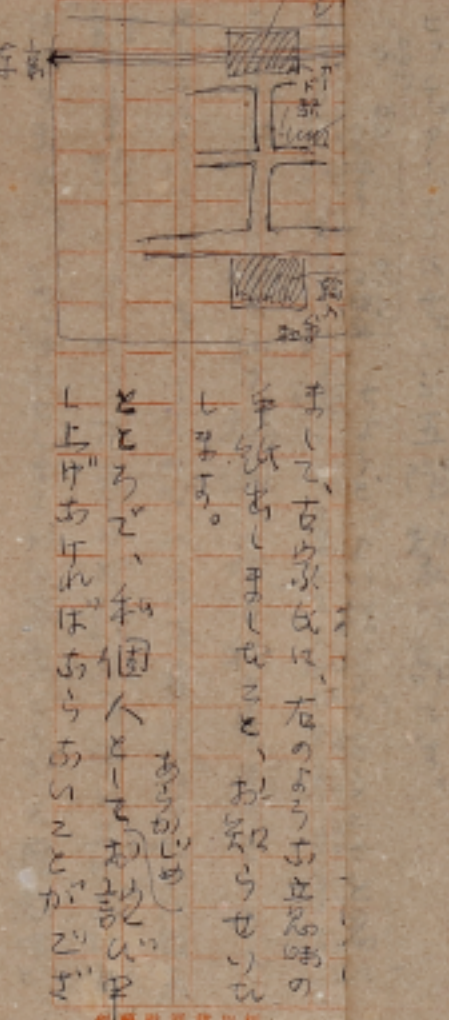 まして、古家氏は、右のような意味の
手紙出しましたこと、お知らせいた
します。
ところで、私個人としてお詫び申
あらかじめ
し上げなければならないことがござ